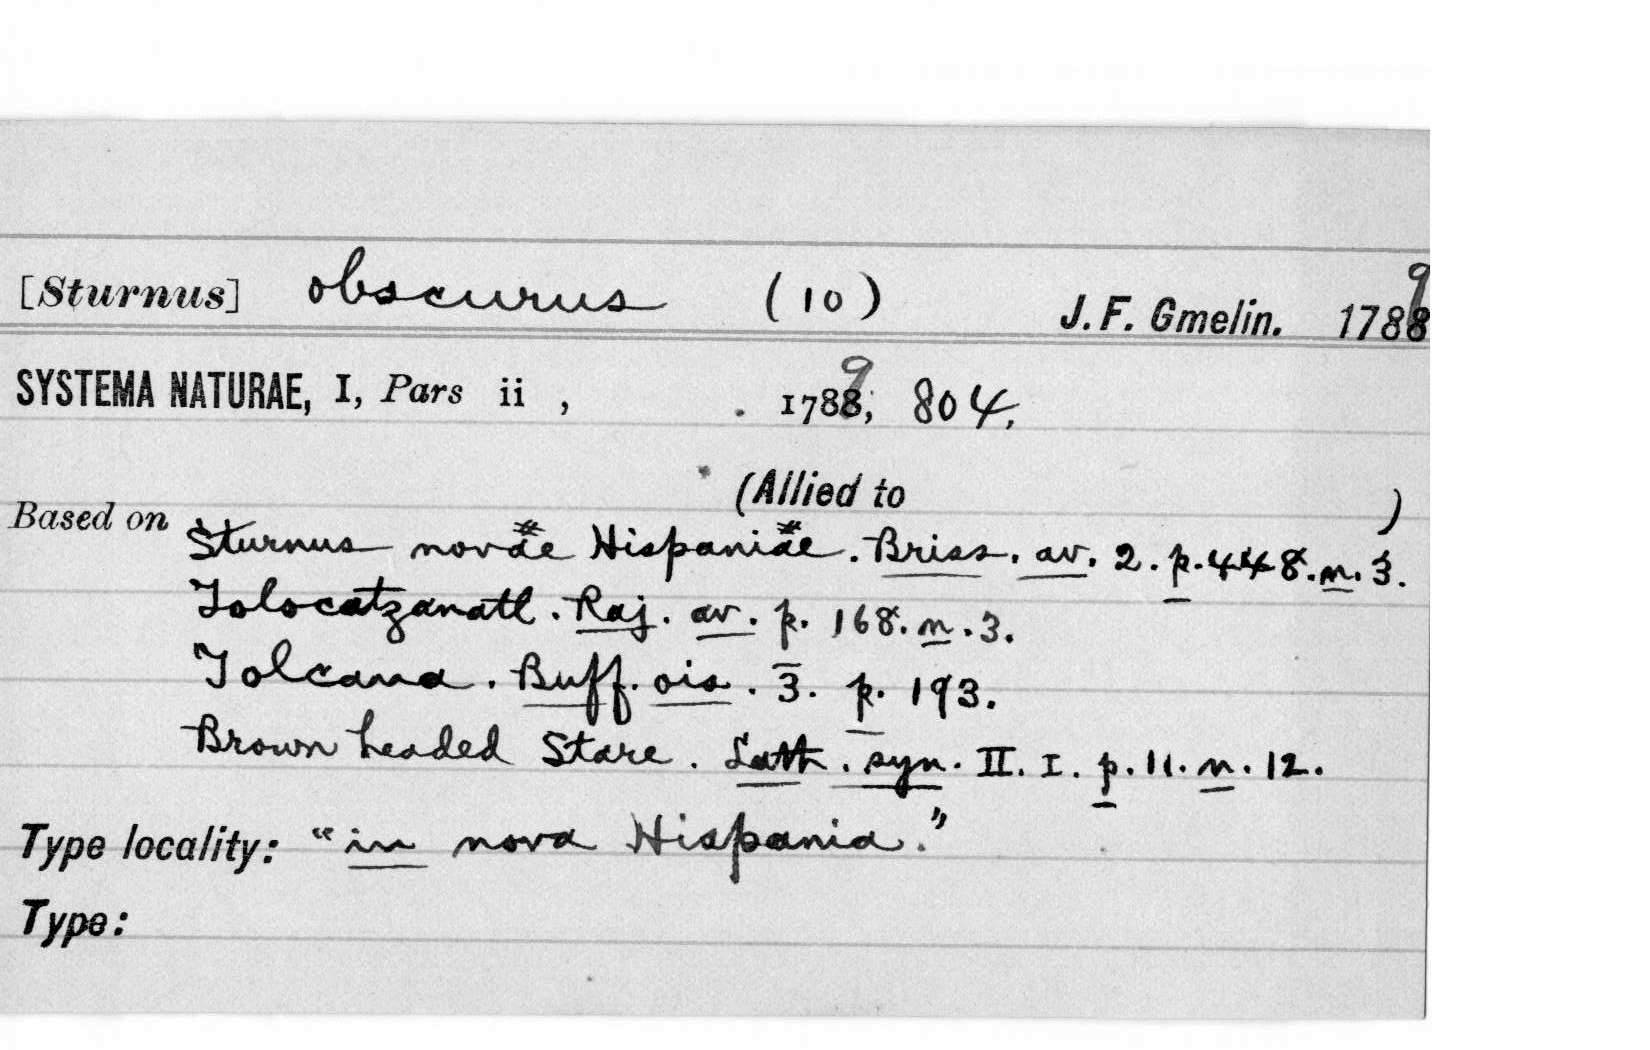 [Sturnus] obscurus (10) J. F. Gmelin. 1789
SYSTEMA NATURAE, I, Pars ii , . 1789, 804,
(Allied to )
Based on Sturnus novae Hispaniae. Briss. av. 2. p. 448. n. 3.
Tolocatzanatl. Raj. av. p. 168. n. 3.
Tolcana. Buff. ois. 3. p. 193.
Brown headed Stare. Lath. syn. II. I. p. 11. n. 12.
Type locality: "in nova Hispania."
Type: